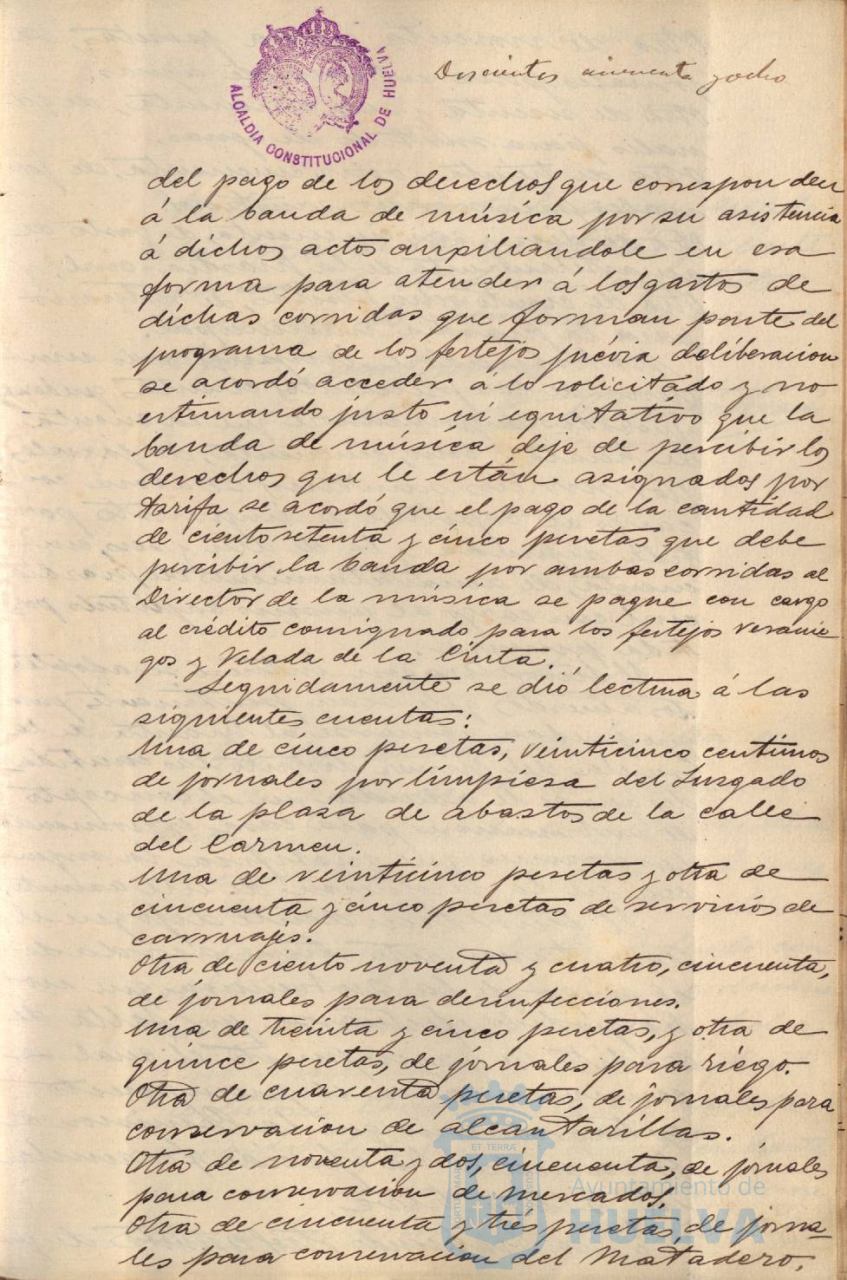 ALCALDIA CONSTITUCIONAL DE HUELVA
Doscientos cincuenta y ocho
del pago de los derechos que corresponden
á la banda de música por su asistencia
á dichos actos auxiliandole en esa
forma para atender á los gastos de
dichas corridas que forman parte del
programa de los festejos prévia deliberacion
se acordó acceder á lo solicitado y no
estimando justo ni equitativo que la
banda de música deje de percibir los
derechos que le están asignados por
tarifa se acordó que el pago de la cantidad
de ciento setenta y cinco pesetas que debe
percibir la banda por ambas corridas al
Director de la música se pague con cargo
al crédito consignado para los festejos veranie-
gos y Velada de la Cinta.
Seguidamente se dió lectura á las
siguientes cuentas:
Una de cinco pesetas, veinticinco centimos
de jornales por limpiesa del Juzgado
de la plasa de abastos de la calle
del Carmen.
Una de veinticinco pesetas y otra de
cincuenta y cinco pesetas de servicios de
carruajes.
Otra de ciento noventa y cuatro, cincuenta,
de jornales para desinfecciones.
Una de treinta y cinco pesetas, y otra de
quince pesetas, de jornales para riego.
Otra de cuarenta pesetas, de jornales para
conservacion de alcantarillas.
Otra de noventa y dos, cincuenta, de jornales
para conservacion de mercados.
Otra de cincuenta y tres pesetas, de jorna-
les para conservacion del Matadero.
ET TERRA
Ayuntamiento de
HUELVA